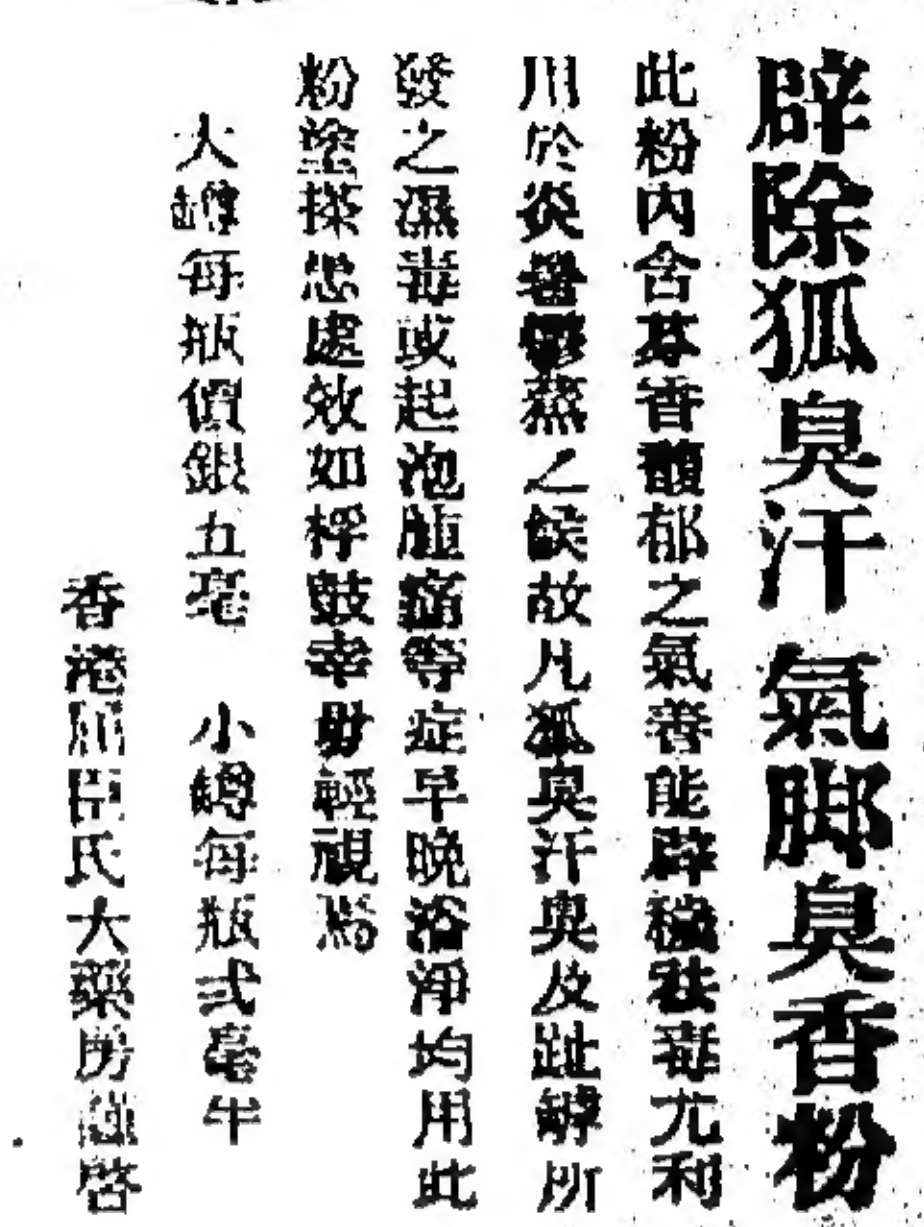 辟除狐臭汗氣脚臭香粉
此粉内含尊香馥郁之氣善能辟穢祛毒尤利
用於炎暑鬱蒸之候故凡狐臭汗臭及趾罅所
發之濕毒或起泡腫痛等症早晚浴淨均用此
粉塗搽患處效如桴鼓幸毋輕視焉
大罇每瓶價銀五毫 小罇每瓶弍毫半
香港屈臣氏大藥房謹啓